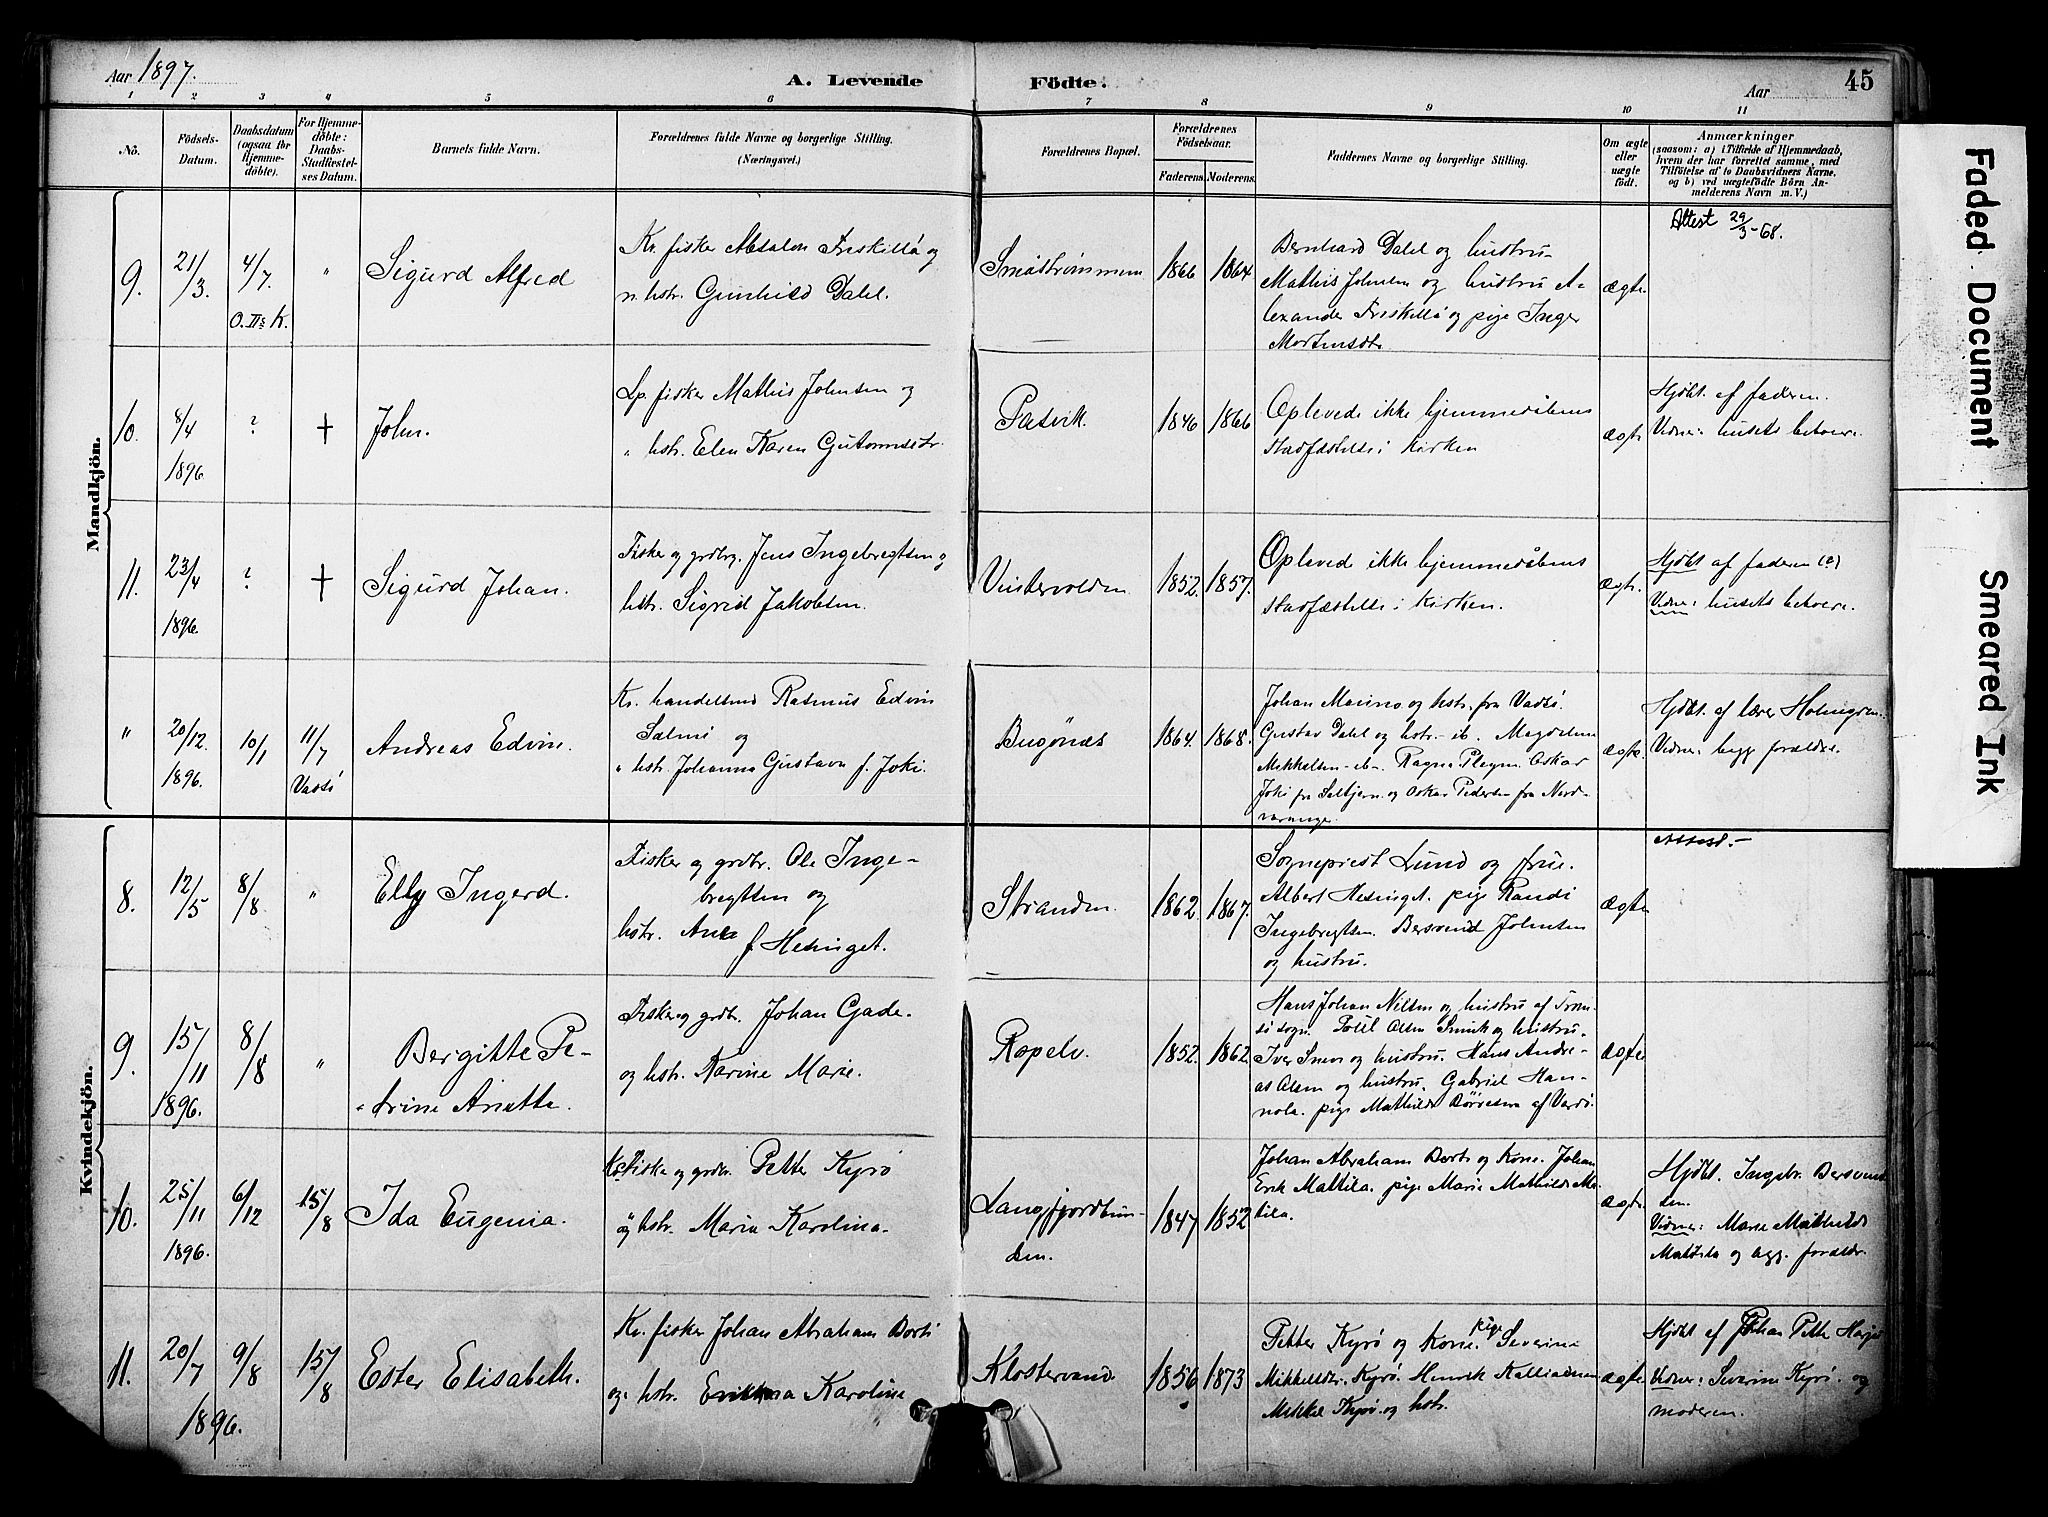 Aar 1897.
A. Levende Födte.
Aar
45
1 2 3 4 5 6 7 8 9 10 11
No.
Födsels-Datum.
Daabsdatum (ogsaa for Hjemme-döbte).
For Hjemme-döbte: Daabs-Stadfæstel-ses Datum.
Barnets fulde Navn.
Forældrenes fulde Navne og borgerlige Stilling. (Næringsvei.)
Forældrenes Bopæl.
Forældrenes Födselsaar.
Faderens. Moderens.
Faddernes Navne og borgerlige Stilling.
Om ægte eller uægte födt.
Anmærkninger
(saasom: a) i Tilfælde af Hjemmedaab,
hvem der har forrettet samme, med
Tilföielse af to Daabsvidners Navne,
og b) ved uægtefödte Börn An-
melderens Navn m. V.)
Mandkjön.
9. 21/3. 4/7. O. IIs K. "
Sigurd Alfred
Kv. fisker Absalon Friskillå og
n. hstr. Gunhild Dahl.
Småströmmen 1866 1864
Bernhard Dahl og hustru
Mathis Johnsen og hustru A-
lexander Friskillå og pige Inger
Mortensdtr
ægte
Attest 29/3-68.
10. 8/4 1896 ? +
John.
Lp. fisker Mathis Johnsen og
" hstr. Elen Karen Gutormsdtr.
Pasvik. 1846 1866
Oplevede ikke hjemmedåbens
stadfæstelse i kirken
ægte
Hjdbt. af faderen.
Vidner: husets beboere.
11. 23/4 1896. ? +
Sigurd Johan.
Fisker og grdbr. Jens Ingebregtsen og
hstr. Sigrid Jakobsen.
Vintervolden 1852. 1857.
Opleved ikke hjemmedåbens
stadfæstelse i kirken.
ægte.
Hjdbt af faderen (?)
Vidner: husets beboere.
" 20/12. 1896. 10/1 11/7 Vadsö
Andreas Edvin.
Kv. handelsmd Rasmus Edvin
Salmi og
" hstr. Johanna Gustava f. Joki.
Bugönæs 1864. 1868.
Johan Marino og hstr. fra Vadsö.
Gustav Dahl og hstr. ib. Magdalena
Mikkelsen ib. Ragna Pleym. Oskar
Joki fra Saltjern og Oskar Pedersen fra Nord-
varanger.
ægte.
Hjdbt. af lærer Holmgren.
Vidner: begg forældre.
Kvindekjön.
8. 12/5 8/8 "
Elly Ingerd.
Fisker og grdbr. Ole Inge-
bregtsen og
hstr. Ane f Hesinget.
Stranden. 1862. 1867.
Sogneprest Lund og frue.
Albert Hesinget. pige Randi
Ingebregtsen. Bersvend Johnsen
og hustru.
ægte
Attest.-
9. 15/11 1896. 8/8 "
Bergitte Pe-
trine Anette.
Fisker og grdbr. Johan Gade.
og hstr. Karine Marie.
Ropelv. 1852. 1862
Hans Johan Nilsen og hustru af Trom-
sö sogn. Poul Olsen Smuk og hustru.
Iver Sneve og hustru. Hans Andre-
as Olsen og hustru. Gabriel Han-
nola. pige Mathilde Börresen af Vardö.
ægte
10. 25/11 1896. 6/12 15/8
Ida Eugenia.
Kv Fisker og grdbr. Petter Kyrö
og hstr. Maria Karolina.
Langfjordbun-
den. 1847 1852
Johan Abraham Borti og Kone. Johan
Erik Mattila. pige Marie Mathilde Ma-
tila.
ægte
Hjdbt. Ingebr. Bersvend
sen.
Vidner: Marie Mathilde
Mattila og begg. forældr.
11. 20/7 1896. 9/8 15/8
Ester Elisabeth.
Kv. fisker Johan Abraham Borti
og hstr. Erikka Karoline
Klostervand 1856 1873
Petter Kyrö og kone. pige Severine
Mikkelsdtr. Kyrö. Henrik Kalliainen
Mikkel Kyrö. og hstr.
ægte
Hjdbt af Johan Petter Harju
Vidner: Severine Kyrö. og
moderen.
Faded Document
Smeared Ink